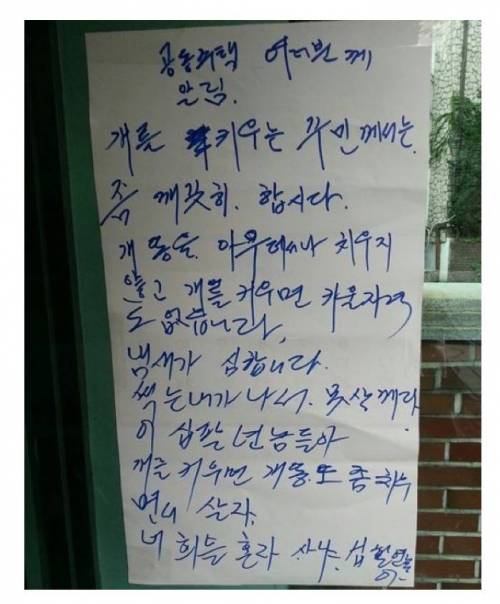 공동주택 여러분께
알림.
개를 키우는 주민께서는.
좀 깨끗히. 합시다.
개똥을. 아무데서나 치우지
않고 개를 키우면 키울자격
도 없습니다.
냄새가 심합니다.
썩는내가 나서. 못살께다
이 십팔 년놈들아
개를 키우면 개똥. 또 좀 치우
면서 살자.
너희들 혼라 사냐. 십팔연놈
아